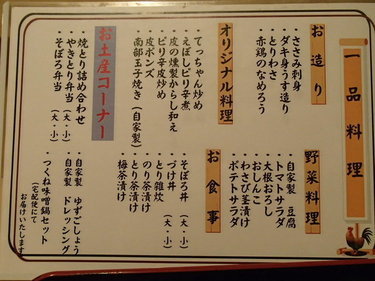 一品料理
お造り
・ささみ刺身
・ダキ身うす造り
・とりわさ
・赤鶏のなめろう
オリジナル料理
・てっちゃん炒め
・えぼしピリ辛煮
・皮の燻製からし和え
・ピリ辛皮炒め
・皮ポンズ
・南部玉子焼き(自家製)
お土産コーナー
・焼とり詰め合わせ
・やきとり弁当(大・小)
・そぼろ弁当(大・小)
野菜料理
・自家製 豆腐
・トマトサラダ
・大根おろし
・おしんこ
・わさび茎漬け
・ポテトサラダ
お食事
・そぼろ丼(大・小)
・づけ丼(大・小)
・とり雑炊
・のり茶漬け
・とり茶漬け
・梅茶漬け
・自家製 ゆずごしょう
・自家製 ドレッシング
・つくね味噌鍋セット
(宅配便にて
お届けいたします)